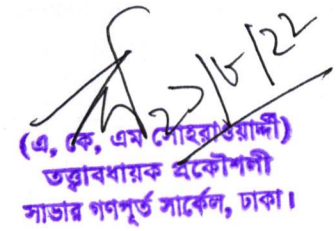 ২১/৮/২২
(এ, কে, এম সোহরাওয়ার্দ্দী)
তত্ত্বাবধায়ক প্রকৌশলী
সাভার গণপূর্ত সার্কেল, ঢাকা।